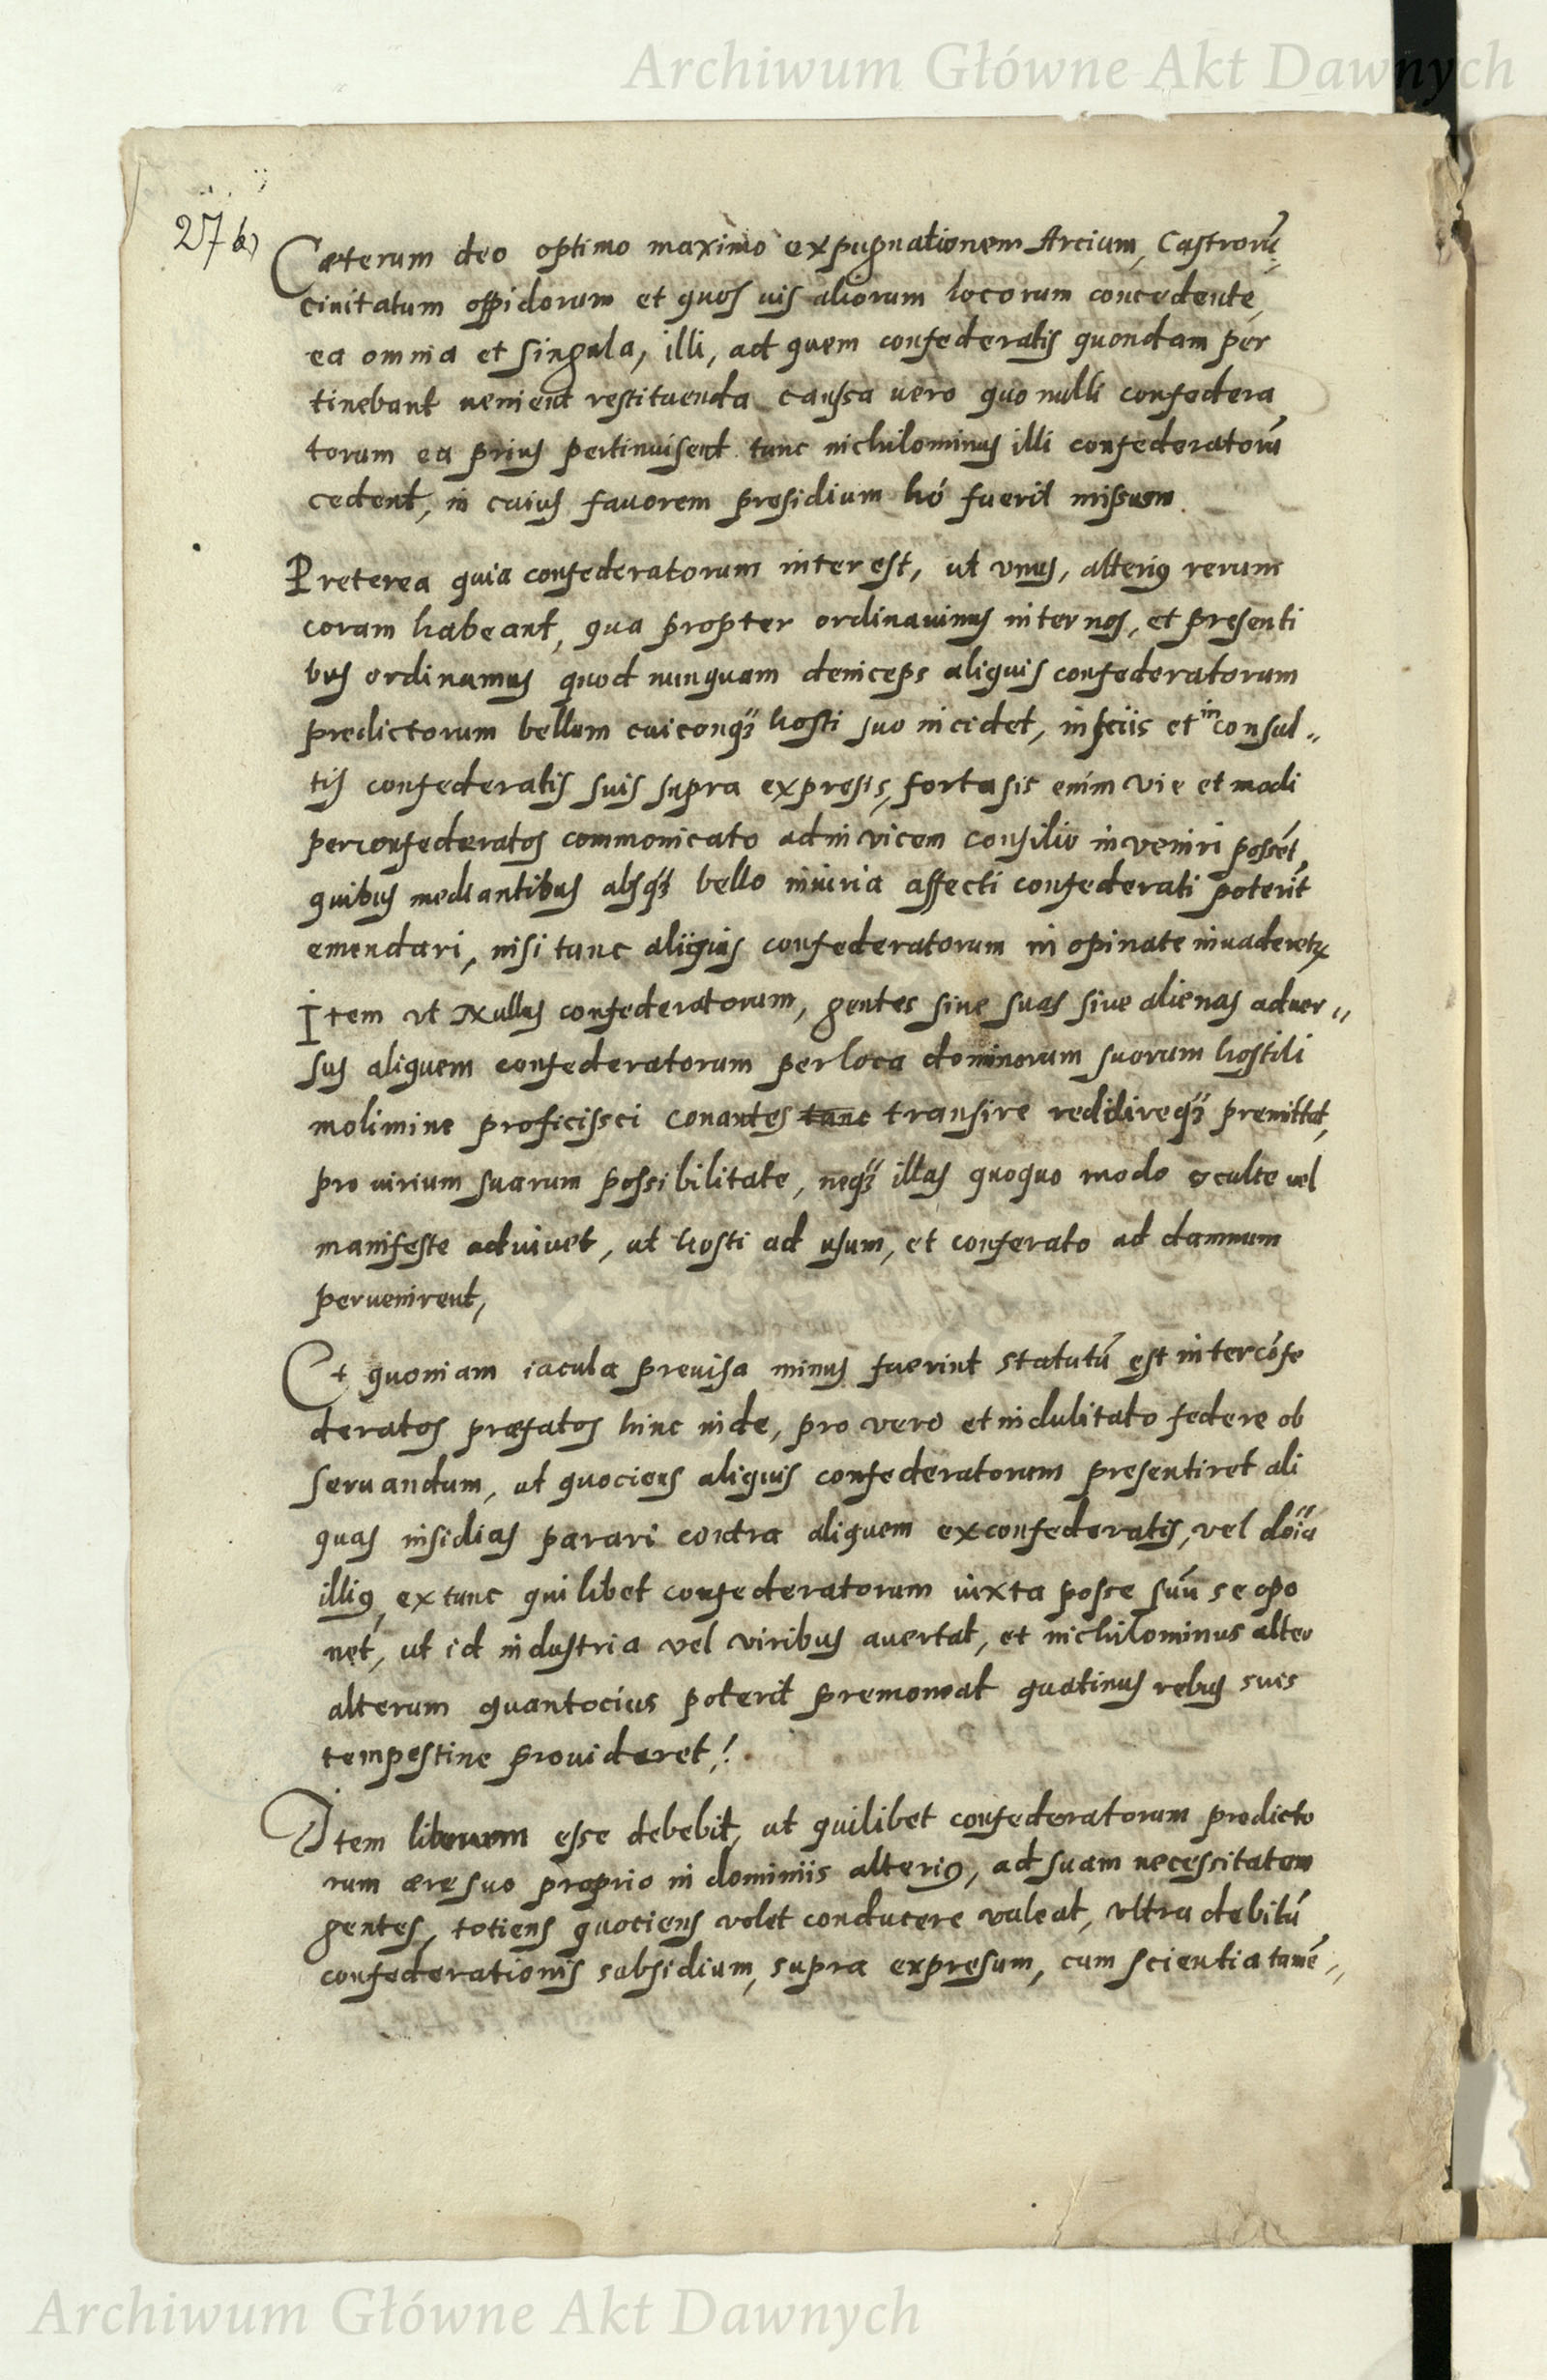 Archiwum Główne Akt Dawnych
27 b)
Cæterum deo optimo maximo expugnationem Arcium, Castrorũ,
ciuitatum oppidorum et quos uis aliorum locorum concedente,
ea omnia et singula, illi, ad quem confederatis quondam per
tinebant uenient restituenda caussa uero quo nulli confedera
torum ea prius pertinuisent tunc nichilominus illi confederatorũ
cedent, in cuius fauorem presidium hó fuerit missum.
Preterea quia confederatorum interest, ut vnus, alterius rerum
coram habeant, qua propter ordinauimus internos, et presenti
bus ordinamus quod nunquam deniceps aliquis confederatorum
predictorum bellum cuiconqꝫ hosti suo incidet, insciis et inconsul„
tis confederatis suis supra expresis, fortasis enim vie et modi
perconfederatos commonicato adinvicem consilio inveniri possẽt,
quibus mediantibus absqꝫ bello iniuria affecti confederati poterit
emendari, nisi tunc aliquis confederatorum in opinate inuaderetꝝ
Item vt Nullus confederatorum, gentes siue suas siue alienas aduer„
sus aliquem confederatorum perloca dominorum suorum hostili
molimine proficissci conantes tunc transire redidireqꝫ premittat,
pro uirium suarum possibilitate, neqꝫ illas quoquo modo oculte uel
manifeste adiuuet, ut hosti ad usum, et conferato ad damnum
peruenirent,
Et quoniam iacula preuisa minus fuerint statutũ est intercõfe
deratos præfatos hinc inde, pro vero et indulitato federe ob
seruandum, ut quociens aliquis confederatorum presentiret ali
quas insidias parari contra aliquem exconfederatis, vel dõia
illius, extunc quilibet confederatorum iuxta posse suũ se opo
net, ut id industria vel viribus auertat, et nichilominus alter
alterum quantocius poterit premoneat quatinus rebus suis
tempestiue prouideret!
Item liberum esse debebit, ut quilibet confederatorum predicto
rum ære suo proprio in dominiis alterius, ad suam necessitatem
gentes, totiens quociens volet conducere valeat, vltra debitũ
confederationis subsidium, supra expresum, cum scientia tamẽ„
Archiwum Główne Akt Dawnych